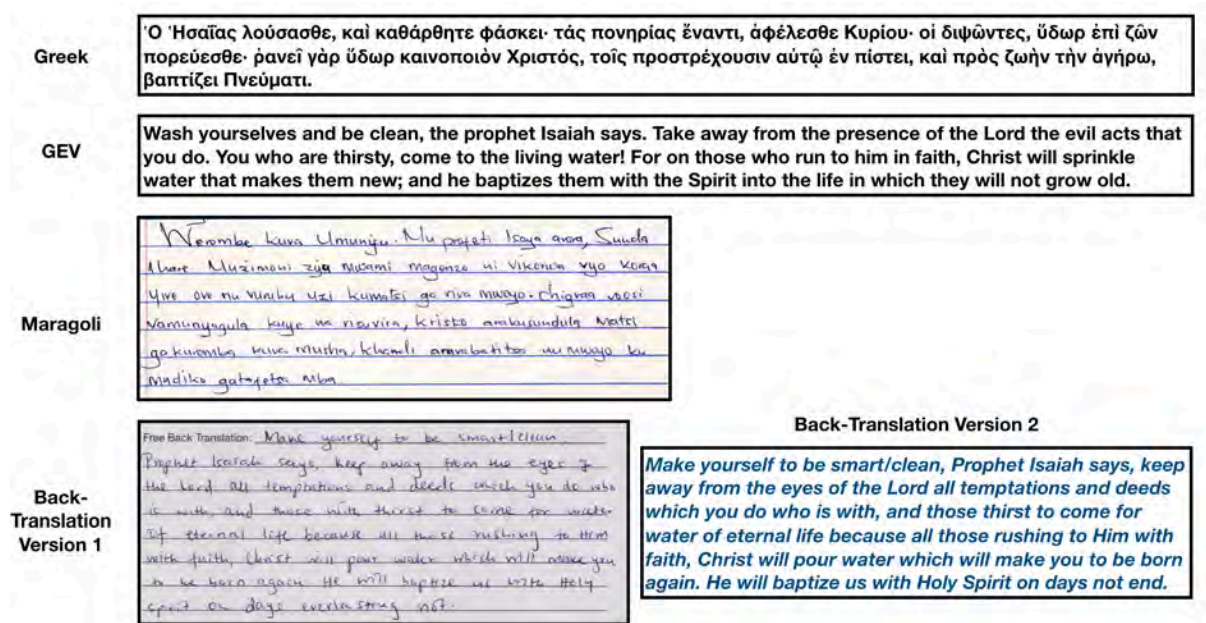 Greek
Ὁ Ἡσαΐας λούσασθε, καὶ καθάρθητε φάσκει· τάς πονηρίας ἔναντι, ἀφέλεσθε Κυρίου· οἱ διψῶντες, ὕδωρ ἐπὶ ζῶν
πορεύεσθε· ῥανεῖ γὰρ ὕδωρ καινοποιὸν Χριστός, τοῖς προστρέχουσιν αὐτῷ ἐν πίστει, καὶ πρὸς ζωὴν τὴν ἀγήρω,
βαπτίζει Πνεύματι.
GEV
Wash yourselves and be clean, the prophet Isaiah says. Take away from the presence of the Lord the evil acts that
you do. You who are thirsty, come to the living water! For on those who run to him in faith, Christ will sprinkle
water that makes them new; and he baptizes them with the Spirit into the life in which they will not grow old.
Maragoli
Werombe kuva Umunyu. Mu prafeti Isaya avora, Suuda
Muzimoni zya Musami magonzo ni vikorwa vyo korga
Yive ove nu vumbu uzi kumatsi ga viva muoyo. Chigraa voosi
Vamunyagula kuye na, Kristo arakusundula Matsi
gakuromba kuva musha, khandi aravabatitsa nu muoyo ku
madiko Mba.
Back-
Translation
Version 1
Free Back Translation: Make yourself to be smart/clean,
Prophet Isaiah says, keep away from the eyes of
the Lord all temptations and deeds which you do who
is with, and those with thirst to come for water
of eternal life because all those rushing to Him
with faith, Christ will pour water which will make you
to be born again. He will baptize us with Holy
spirit on days everlasting not.
Back-Translation Version 2
Make yourself to be smart/clean, Prophet Isaiah says, keep
away from the eyes of the Lord all temptations and deeds
which you do who is with, and those thirst to come for
water of eternal life because all those rushing to Him with
faith, Christ will pour water which will make you to be born
again. He will baptize us with Holy Spirit on days not end.